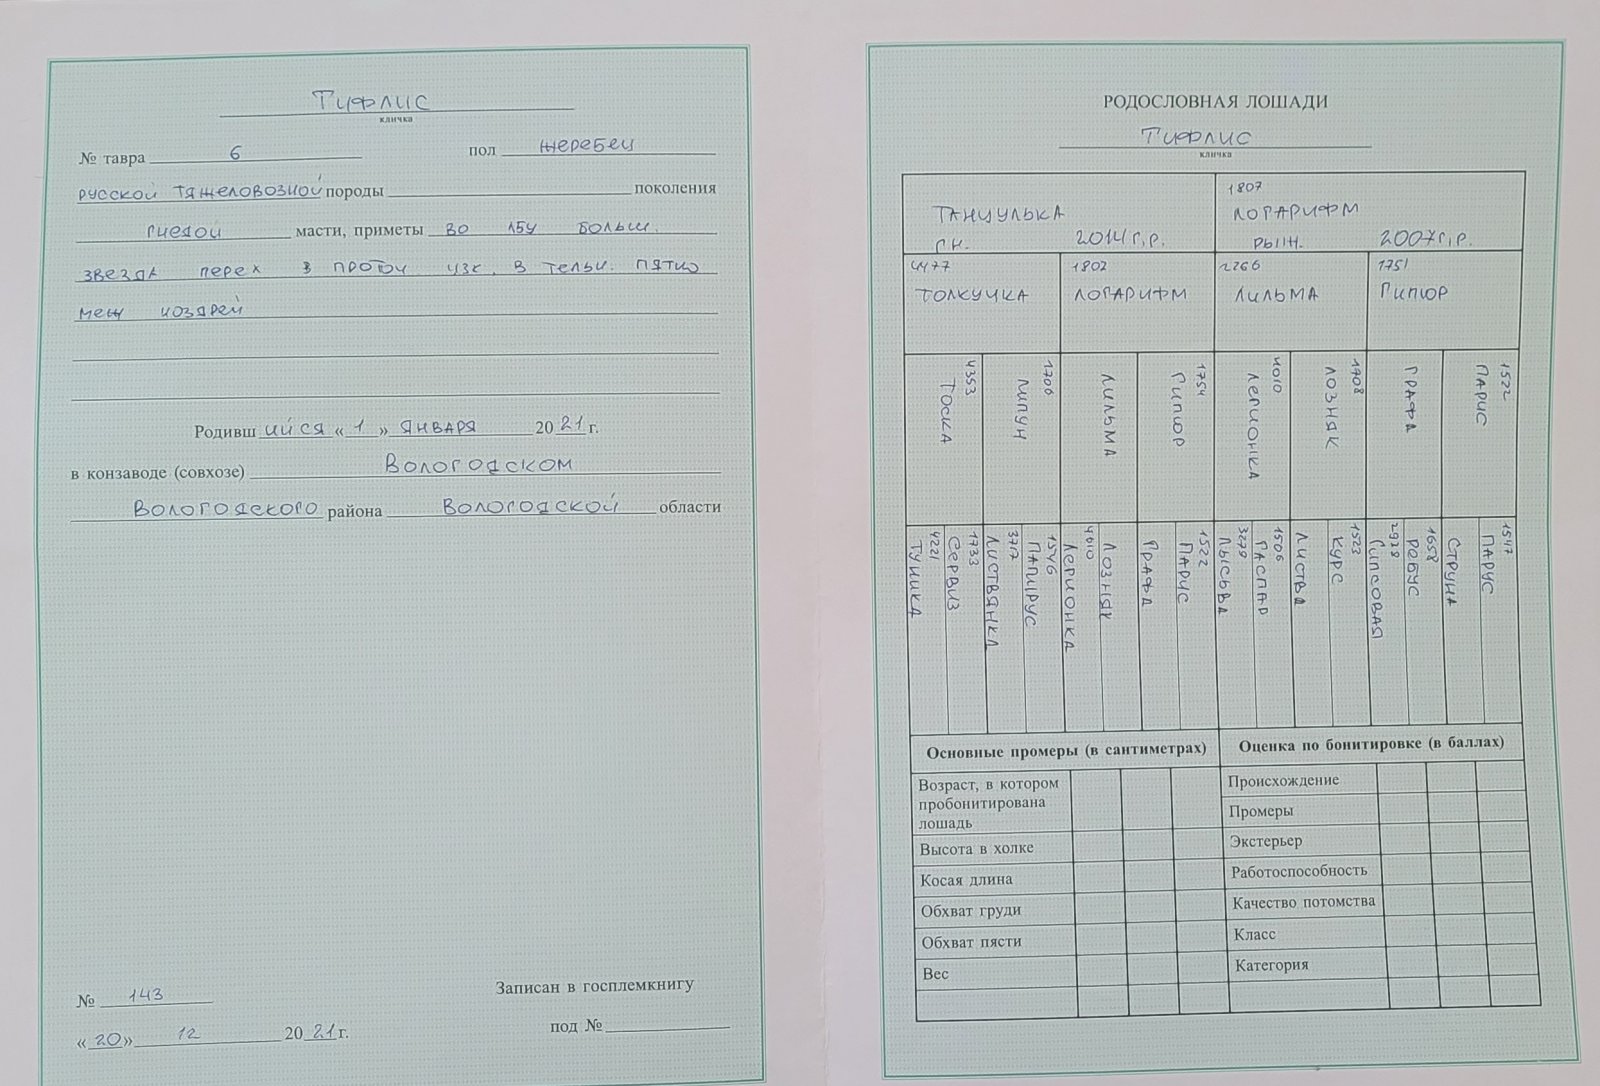 Тифлис
кличка
№ тавра 6 пол жеребец
русской тяжеловозной породы поколения
гнедой масти, приметы во лбу больш.
звезда перех в проточ узк. в тельн. пятно
меж ноздрей
Родивш ийся «1» января 2021 г.
в конзаводе (совхозе) Вологодском
Вологодского района Вологодской области
№ 143
Записан в госплемкнигу
«20» 12 2021 г.
под №
РОДОСЛОВНАЯ ЛОШАДИ
Тифлис
кличка
ТАНЦУЛЬКА
гн. 2014 г.р.
1807
ЛОГАРИФМ
рыж. 2007 г.р.
4477
ТОЛКУЧКА
1802
ЛОГАРИФМ
2266
ЛИЛЬМА
1751
ГИПЮР
4353
ТОСКА
1706
ЛИПУН
ЛИЛЬМА
1754
ГИПЮР
4010
ЛЕГИОНКА
1708
ЛОЗНЯК
ГРАФА
1522
ПАРИС
4221
ТУНИКА
1733
СЕРВИЗ
3717
ЛИСТВЯНКА
1546
ПАПИРУС
4010
ЛЕГИОНКА
ЛОЗНЯК
ГРАФА
1522
ПАРИС
3279
ЛЫСЬВА
1506
ГАСПАР
ЛИСТВА
1523
КУРС
2928
ГИПСОВАЯ
1658
РЕБУС
СТРУНА
1547
ПАРУС
Основные промеры (в сантиметрах)
Возраст, в котором
пробонитирована
лошадь
Высота в холке
Косая длина
Обхват груди
Обхват пясти
Вес
Оценка по бонитировке (в баллах)
Происхождение
Промеры
Экстерьер
Работоспособность
Качество потомства
Класс
Категория